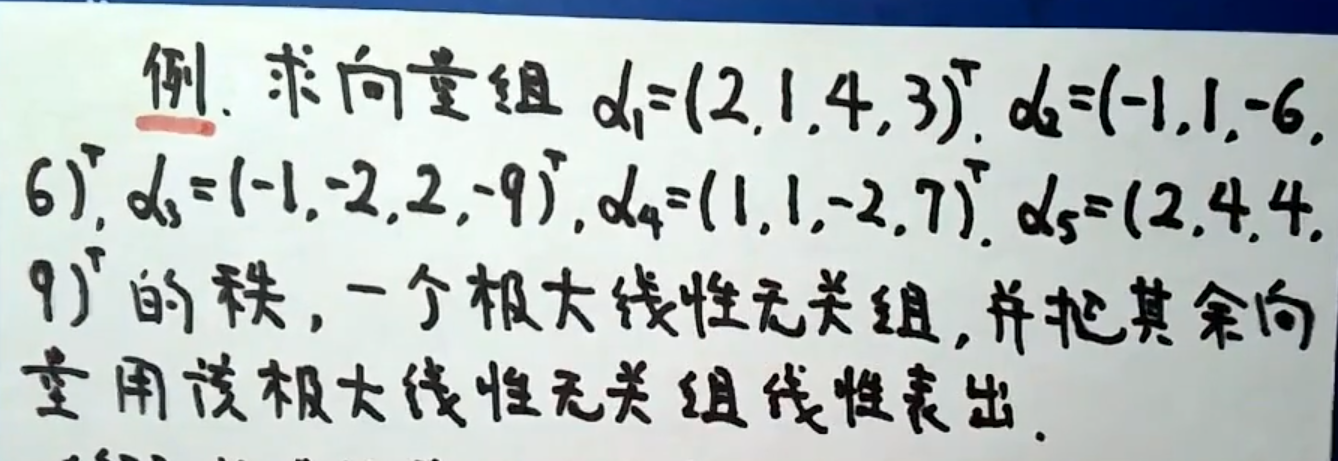 例. 求向量组 α₁=(2,1,4,3)ᵀ, α₂=(-1,1,-6,
6)ᵀ, α₃=(-1,-2,2,-9)ᵀ, α₄=(1,1,-2,7)ᵀ, α₅=(2,4,4,
9)ᵀ 的秩, 一个极大线性无关组, 并把其余向
量用该极大线性无关组线性表出.